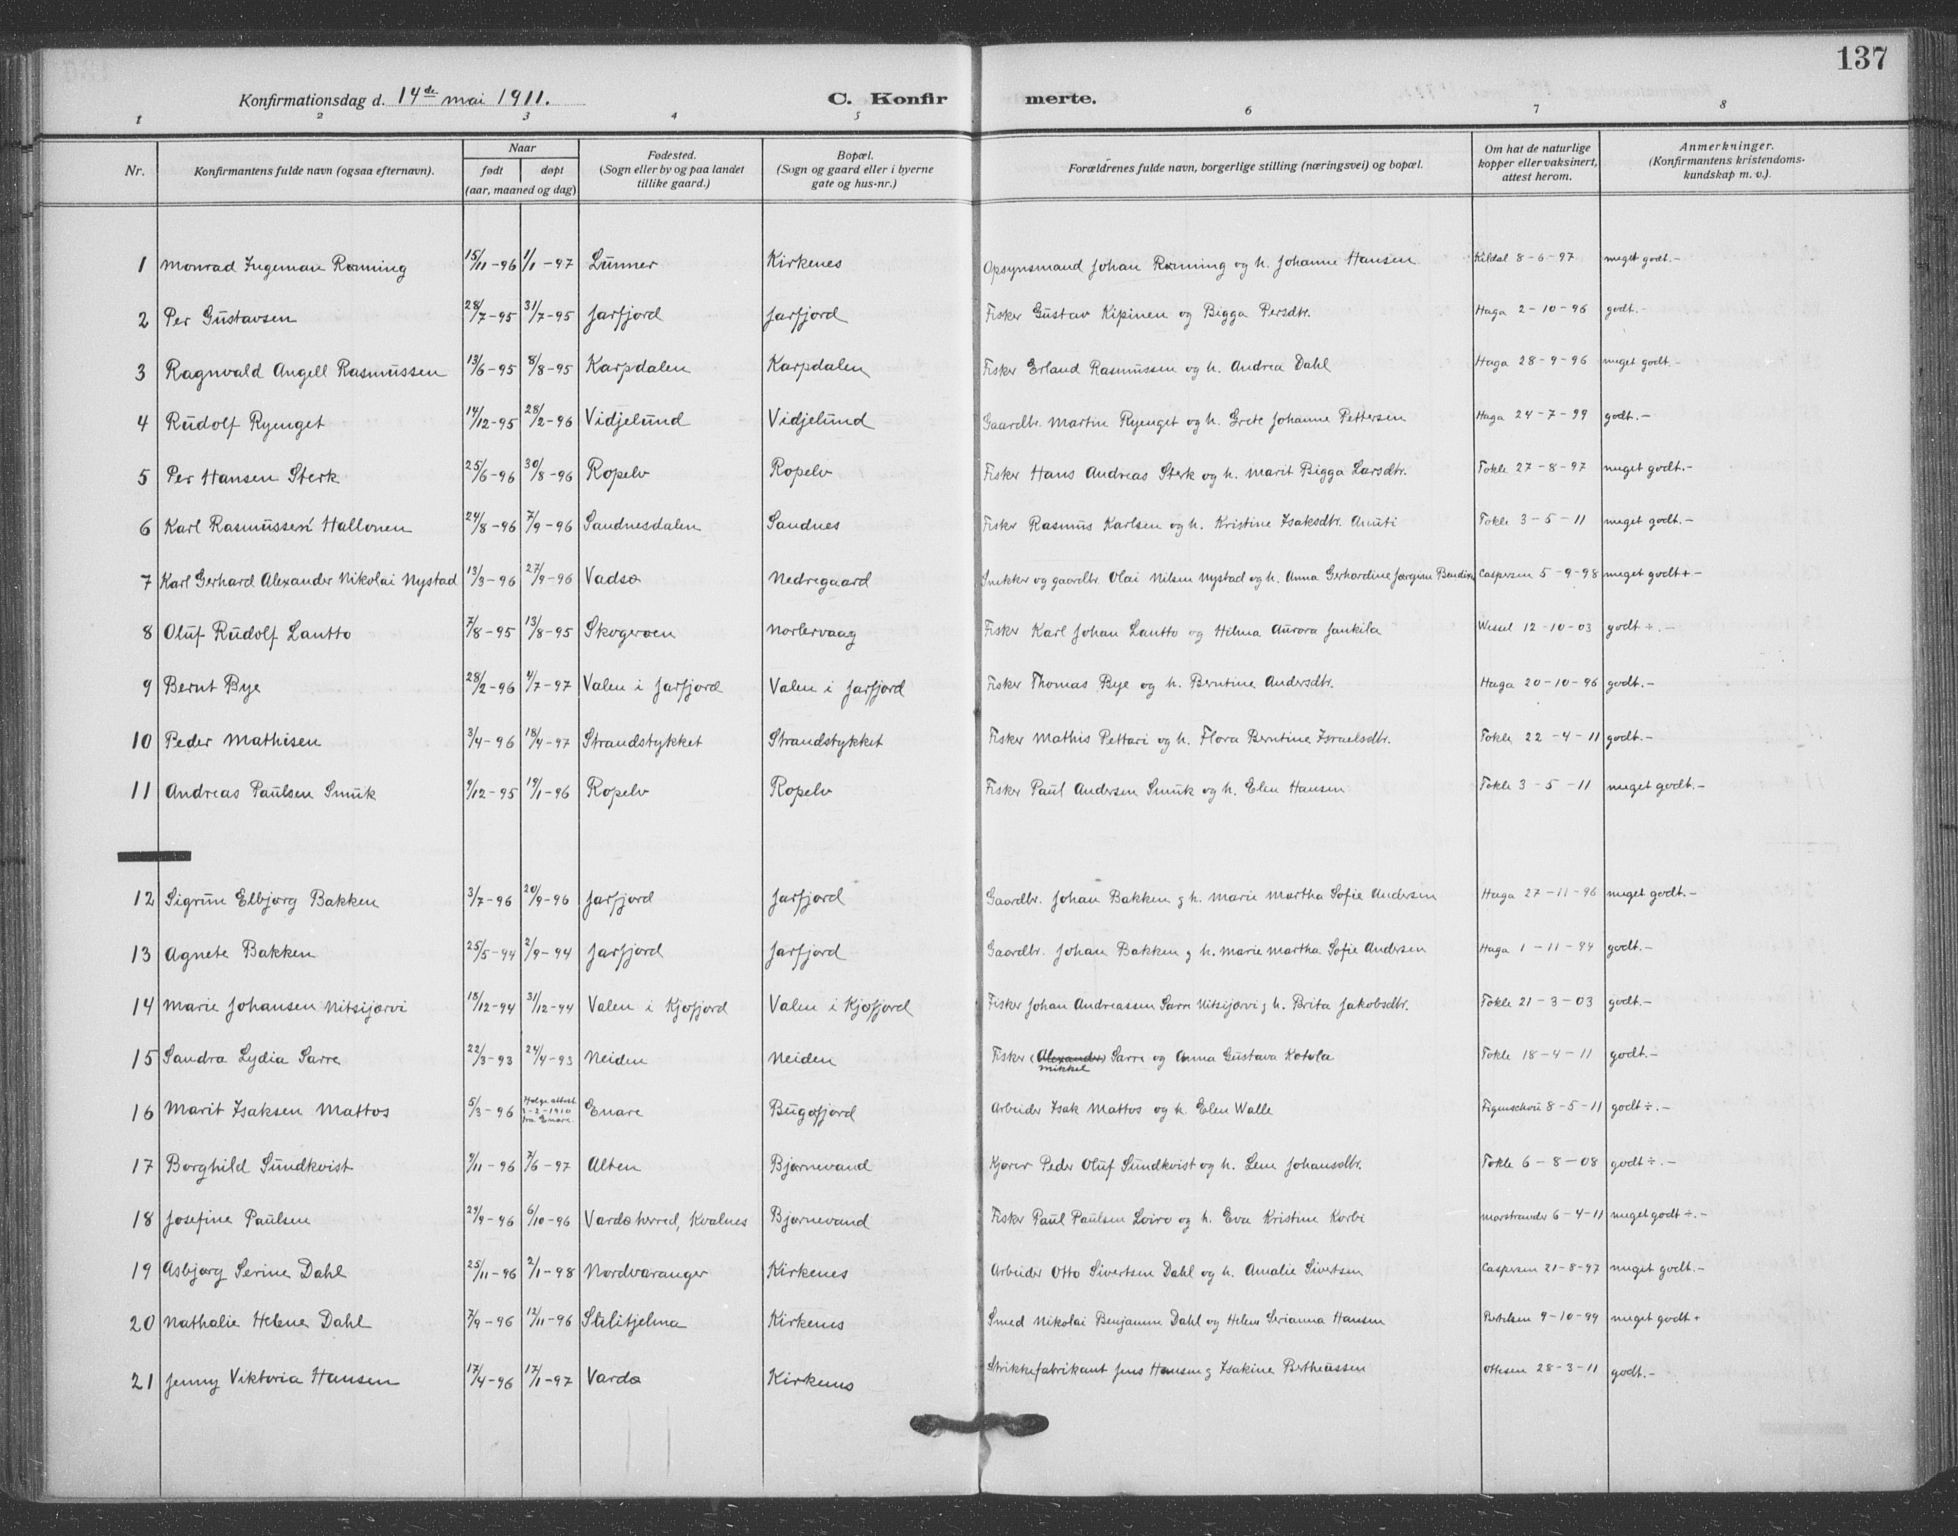 137
Konfirmationsdag d. 14de mai 1911. C. Konfirmerte.
1 2 3 4 5 6 7 8
Nr. Konfirmantens fulde navn (ogsaa efternavn). Naar født døpt (aar, maaned og dag) Fødested. (Sogn eller by og paa landet tillike gaard.) Bopæl. (Sogn og gaard eller i byerne gate og hus-nr.) Forældrenes fulde navn, borgerlige stilling (næringsvei) og bopæl. Om hat de naturlige kopper eller vaksinert, attest herom. Anmerkninger. (Konfirmantens kristendomskundskap m. v.).
1 Monrad Ingeman Rønning 15/11-96 1/1-97 Lunner Kirkenes Opsynsmand Johan Rønning og h. Johanne Hansen Kildal 8-6-97 meget godt.-
2 Per Gustavsen 28/7-95 31/7-95 Jarfjord Jarfjord Fisker Gustav Kipinen og Bigga Persdtr. Haga 2-10-96 godt.-
3 Ragnvald Angell Rasmussen 13/6-95 8/8-95 Karpdalen Karpdalen Fisker Erland Rasmussen og h. Andrea Dahl Haga 28-9-96 meget godt.-
4 Rudolf Ryenget 14/12-95 28/2-96 Vidjelund Vidjelund Gaardbr. Martin Ryenget og h. Grete Johanne Pettersen Haga 24-7-99 godt.-
5 Per Hansen Sterk 25/6-96 30/8-96 Ropelv Ropelv Fisker Hans Andreas Sterk og h. Marit Bigga Larsdtr. Tokle 27-8-97 meget godt.-
6 Karl Rasmussen Hallonen 24/8-96 7/9-96 Sandnesdalen Sandnes Fisker Rasmus Karlsen og h. Kristine Isaksdtr. Anuti Tokle 3-5-11 meget godt.-
7 Karl Gerhard Alexander Nikolai Nystad 13/3-96 27/9-96 Vadsø Nedregaard Snekker og gaardbr. Olai Nilsen Nystad og h. Anna Gerhardine Jørgine Caspersen 5-9-98 meget godt+-
8 Oluf Rudolf Lautto 7/8-95 13/8-95 Skogerøen Norlervaag Fisker Karl Johan Lautto og Hilma Aurora Jankila Wessel 12-10-03 godt ÷.-
9 Bernt Bye 28/2-96 4/7-97 Valen i Jarfjord Valen i Jarfjord Fisker Thomas Bye og h. Berntine Andersdtr. Haga 20-10-96 godt.-
10 Peder Mathisen 3/4-96 18/4-97 Strandstykket Strandstykket Fisker Mathis Pettari og h. Flora Berntine Israelsdtr. Tokle 22-4-11 godt.-
11 Andreas Paulsen Smuk 9/12-95 19/1-96 Ropelv Ropelv Fisker Paul Andersen Smuk og h. Elen Hansen Tokle 3-5-11 meget godt.-
12 Sigrun Elbjørg Bakken 3/7-96 20/9-96 Jarfjord Jarfjord Gaardbr. Johan Bakken g h. Marie Martha Sofie Andersen Haga 27-11-96 meget godt.-
13 Agnete Bakken 25/5-94 2/9-94 Jarfjord Jarfjord Gaardbr. Johan Bakken g h. Marie Martha Sofie Andersen Haga 1-11-94 godt.-
14 Marie Johansen Nitsijærvi 18/12-94 31/12-94 Valen i Kjøfjord Valen i Kjøfjord Fisker Johan Andreassen Sarre Nitsijærvi g h. Brita Jakobsdtr. Tokle 21-3-03 godt.-
15 Sandra Lydia Sarre 22/3-93 24/4-93 Neiden Neiden Fisker (Alexander) Sarre og Anna Gustava Kotola Tokle 18-4-11 godt.-
mikkel
16 Marit Isaksen Mattos 5/3-96 Ifølge attest 3-2-1910 fra Enare. Enare Bugøfjord Arbeider Isak Mattos og h. Elen Walle Figenschou 8-5-11 godt ÷.-
17 Borghild Sundkvist 9/11-96 7/6-97 Alten Bjørnevand Kjører Peder Oluf Sundkvist og h. Lene Johansdtr. Tokle 6-8-08 godt ÷.-
18 Josefine Paulsen 29/9-96 6/10-96 Vardø herred, Kvalnes Bjørnevand Fisker Paul Paulsen Loiro og h. Eva Kristine Korbi Marstrander 6-4-11 meget godt ÷.-
19 Asbjørg Serine Dahl 25/11-96 2/1-98 Nordvaranger Kirkenes Arbeider Otto Sivertsen Dahl og h. Amalie Sivertsen Caspersen 21-8-97 meget godt.-
20 Nathalie Helene Dahl 7/9-96 12/11-96 Sulitjelma Kirkenes Smed Nikolai Benjamin Dahl og Helene Serianna Hansen Bertelsen 9-10-99 meget godt +
21 Jenny Viktoria Hansen 17/4-96 17/1-97 Vardø Kirkenes Strikkefabrikant Jens Hansen g Isakine Bertheussen Ottesen 28-3-11 godt.-